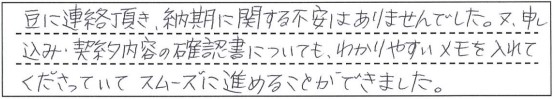 豆に連絡頂き、納期に関する不安はありませんでした。又、申し
込み・契約内容の確認書についても、わかりやすいメモを入れて
くださっていて スムーズに進めることができました。